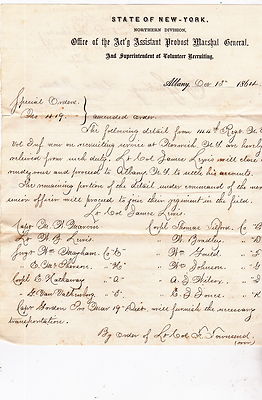 STATE OF NEW-YORK.
NORTHERN DIVISION,
Office of the Act'g Assistant Provost Marshal General,
And Superintendent of Volunteer Recruiting.
Albany, Dec 15" 1864.
Special Orders
No 419. amended order.
The following detail from 144th Regt. N.Y.
Vol Inf now on recruiting service at Norwich N.Y. are hereby
relieved from such duty. Lt Col James Lewis will close
rendezvous and proceed to Albany N.Y. to settle his accounts.
The remaining portion of the detail under command of the
officer will proceed to join their regiment in the field.
Lt Col James Lewis.
Capt
Corpl Thomas
Co B
Lt W. B. Lewis.
W. Bradley. " D
Sergt Wm
Co C
Wm Gould. " S
E. " H
Wm Johnson. " G
Corpl E Hathaway " A
A. J. " E
G. Van Valkenburg. " C
E. J. Jones. " K
Capt Gordon Pro Mar 19" Dist. will furnish the necessary
transportation.
By order of Lt Col F. Townsend
(over)